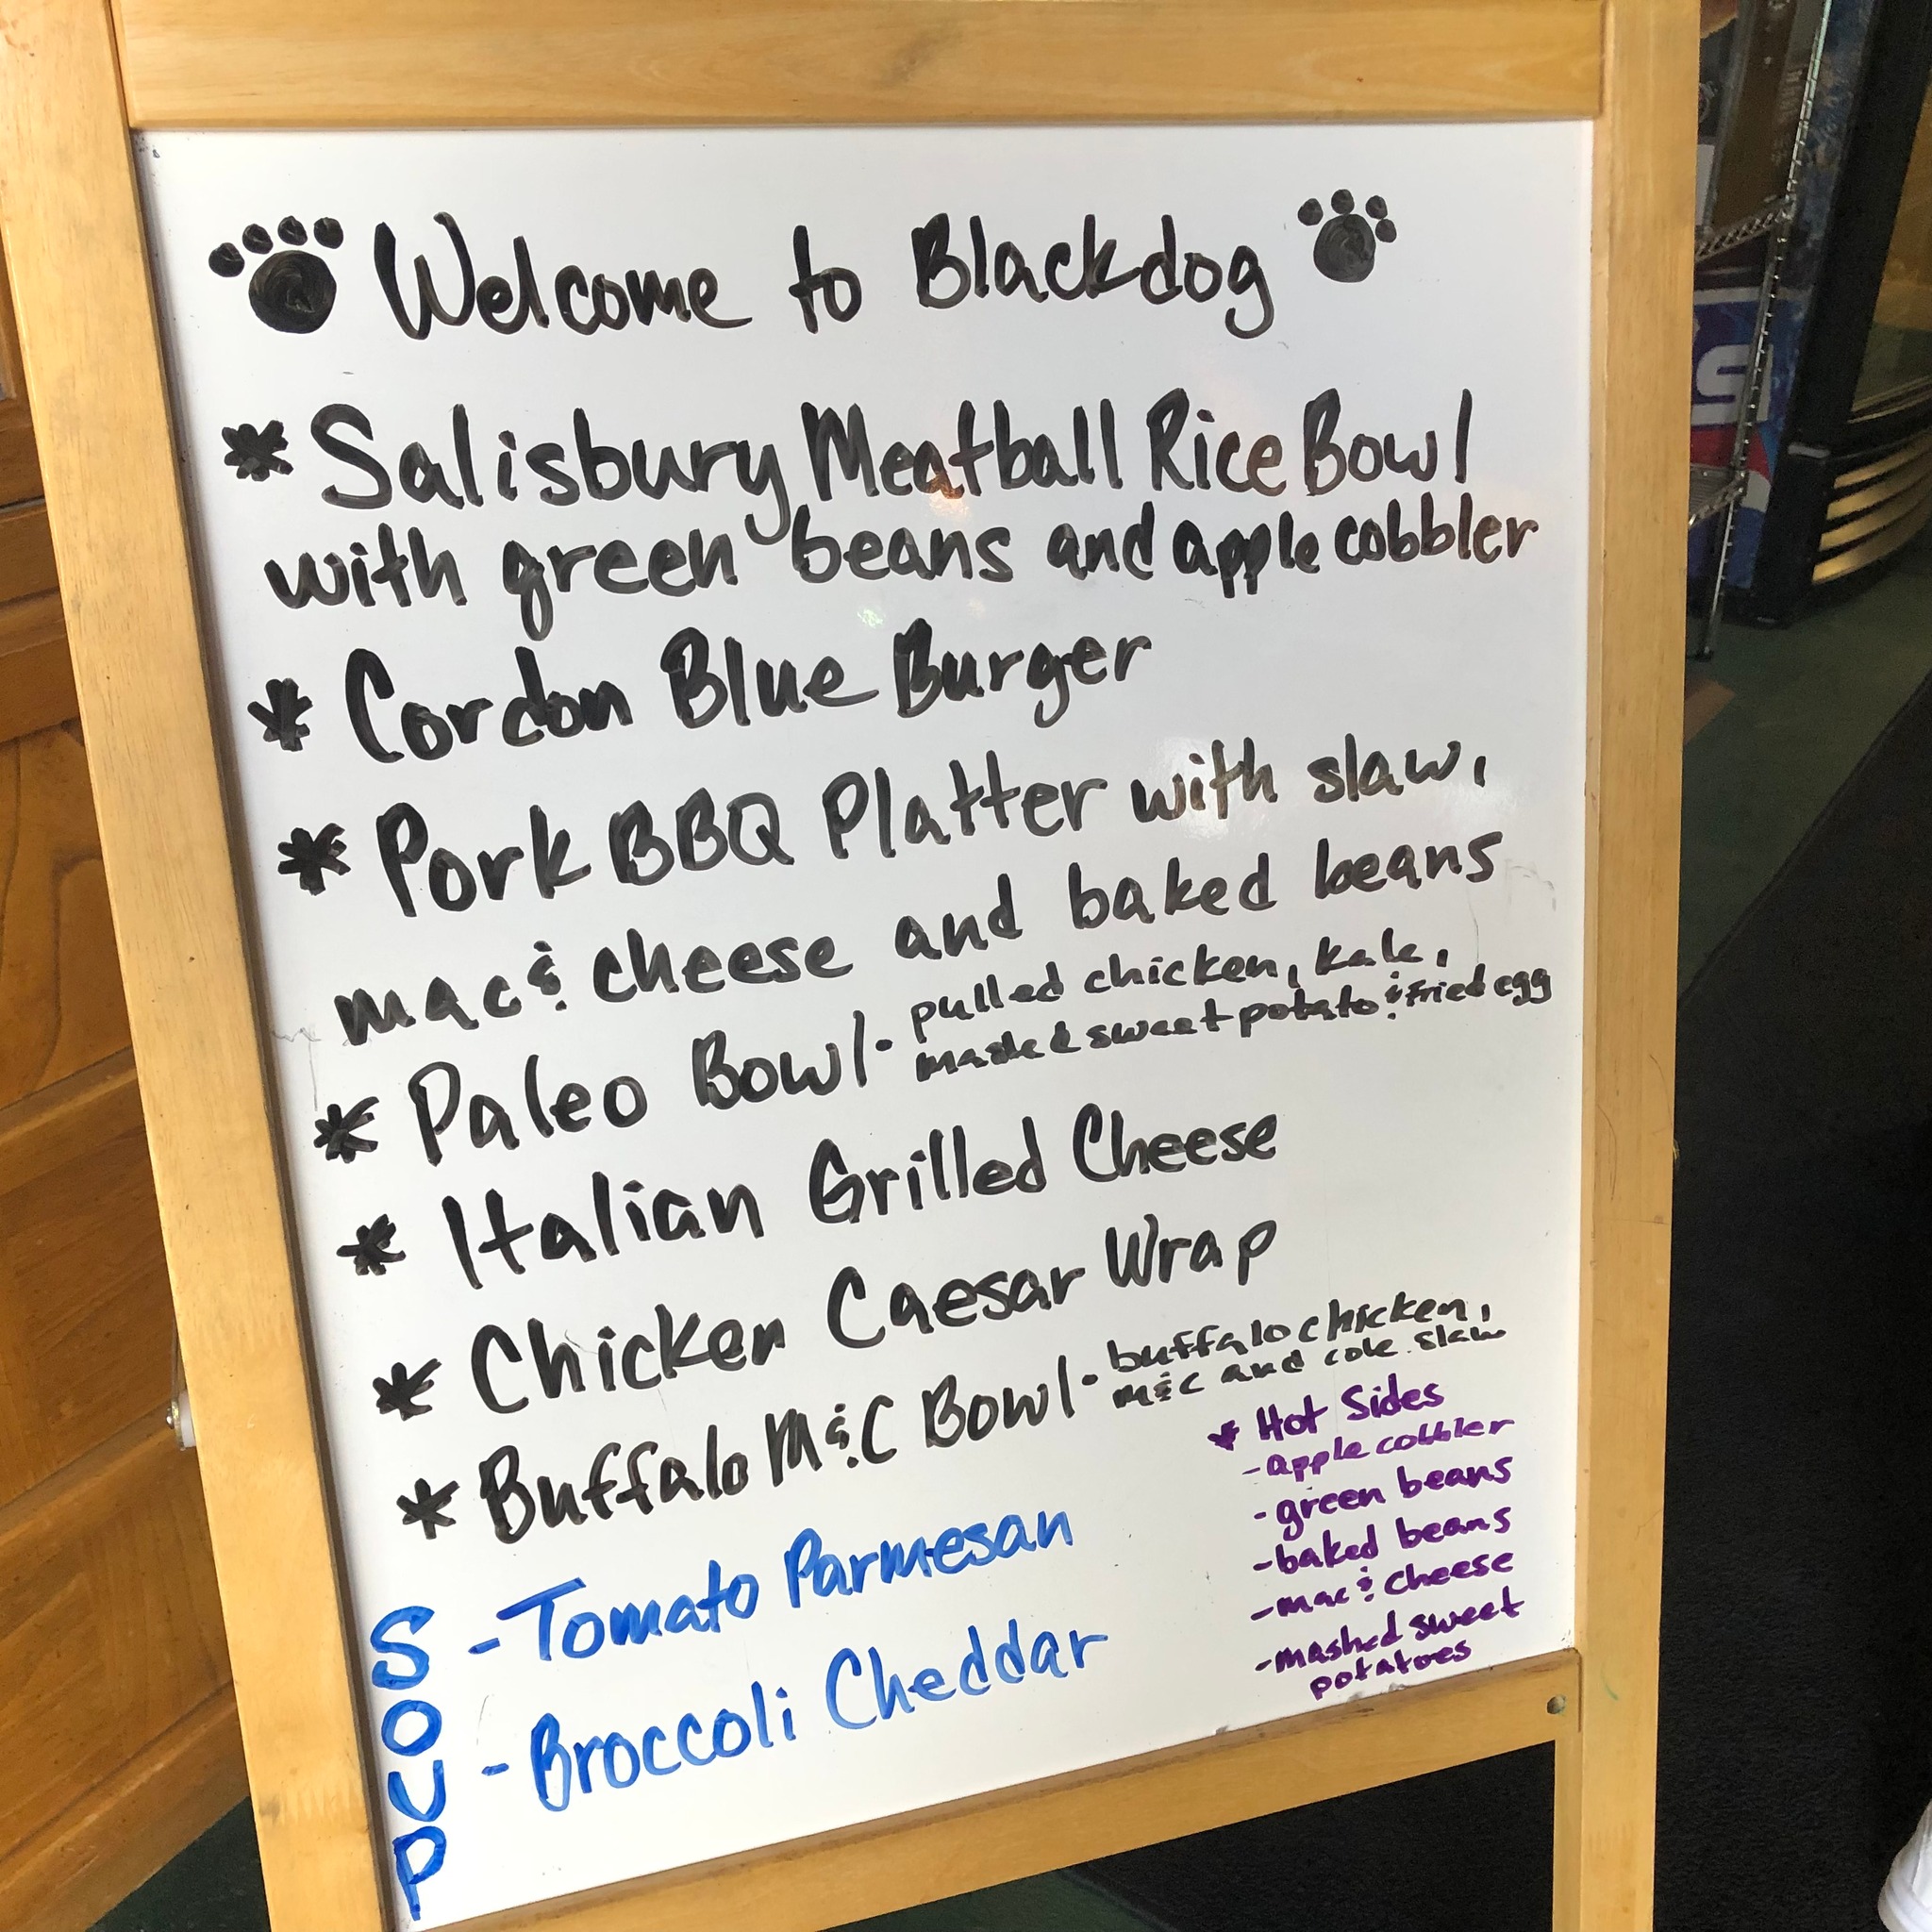 Welcome to Blackdog
* Salisbury Meatball Rice Bowl
with green beans and apple cobbler
* Cordon Blue Burger
* Pork BBQ Platter with slaw,
mac & cheese and baked beans
* Paleo Bowl - pulled chicken, kale,
mashed sweet potato & fried egg
* Italian Grilled Cheese
* Chicken Caesar Wrap
* Buffalo M&C Bowl - buffalo chicken,
M&C and cole slaw
SOUP
- Tomato Parmesan
- Broccoli Cheddar
* Hot Sides
- apple cobbler
- green beans
- baked beans
- mac & cheese
- mashed sweet
potatoes